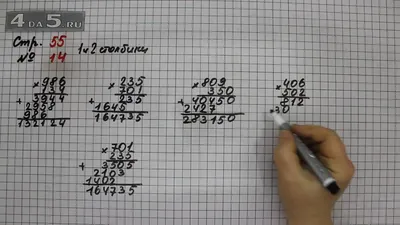 4DA5.RU
Стр. 55
№ 14
1 и 2 столбики
× 986
134
+ 3944
2958
986
132124
× 235
701
+ 235
1645
164735
× 809
350
+ 40450
2427
283150
× 406
502
812
+ 30
× 701
235
+ 3505
2103
1402
164735